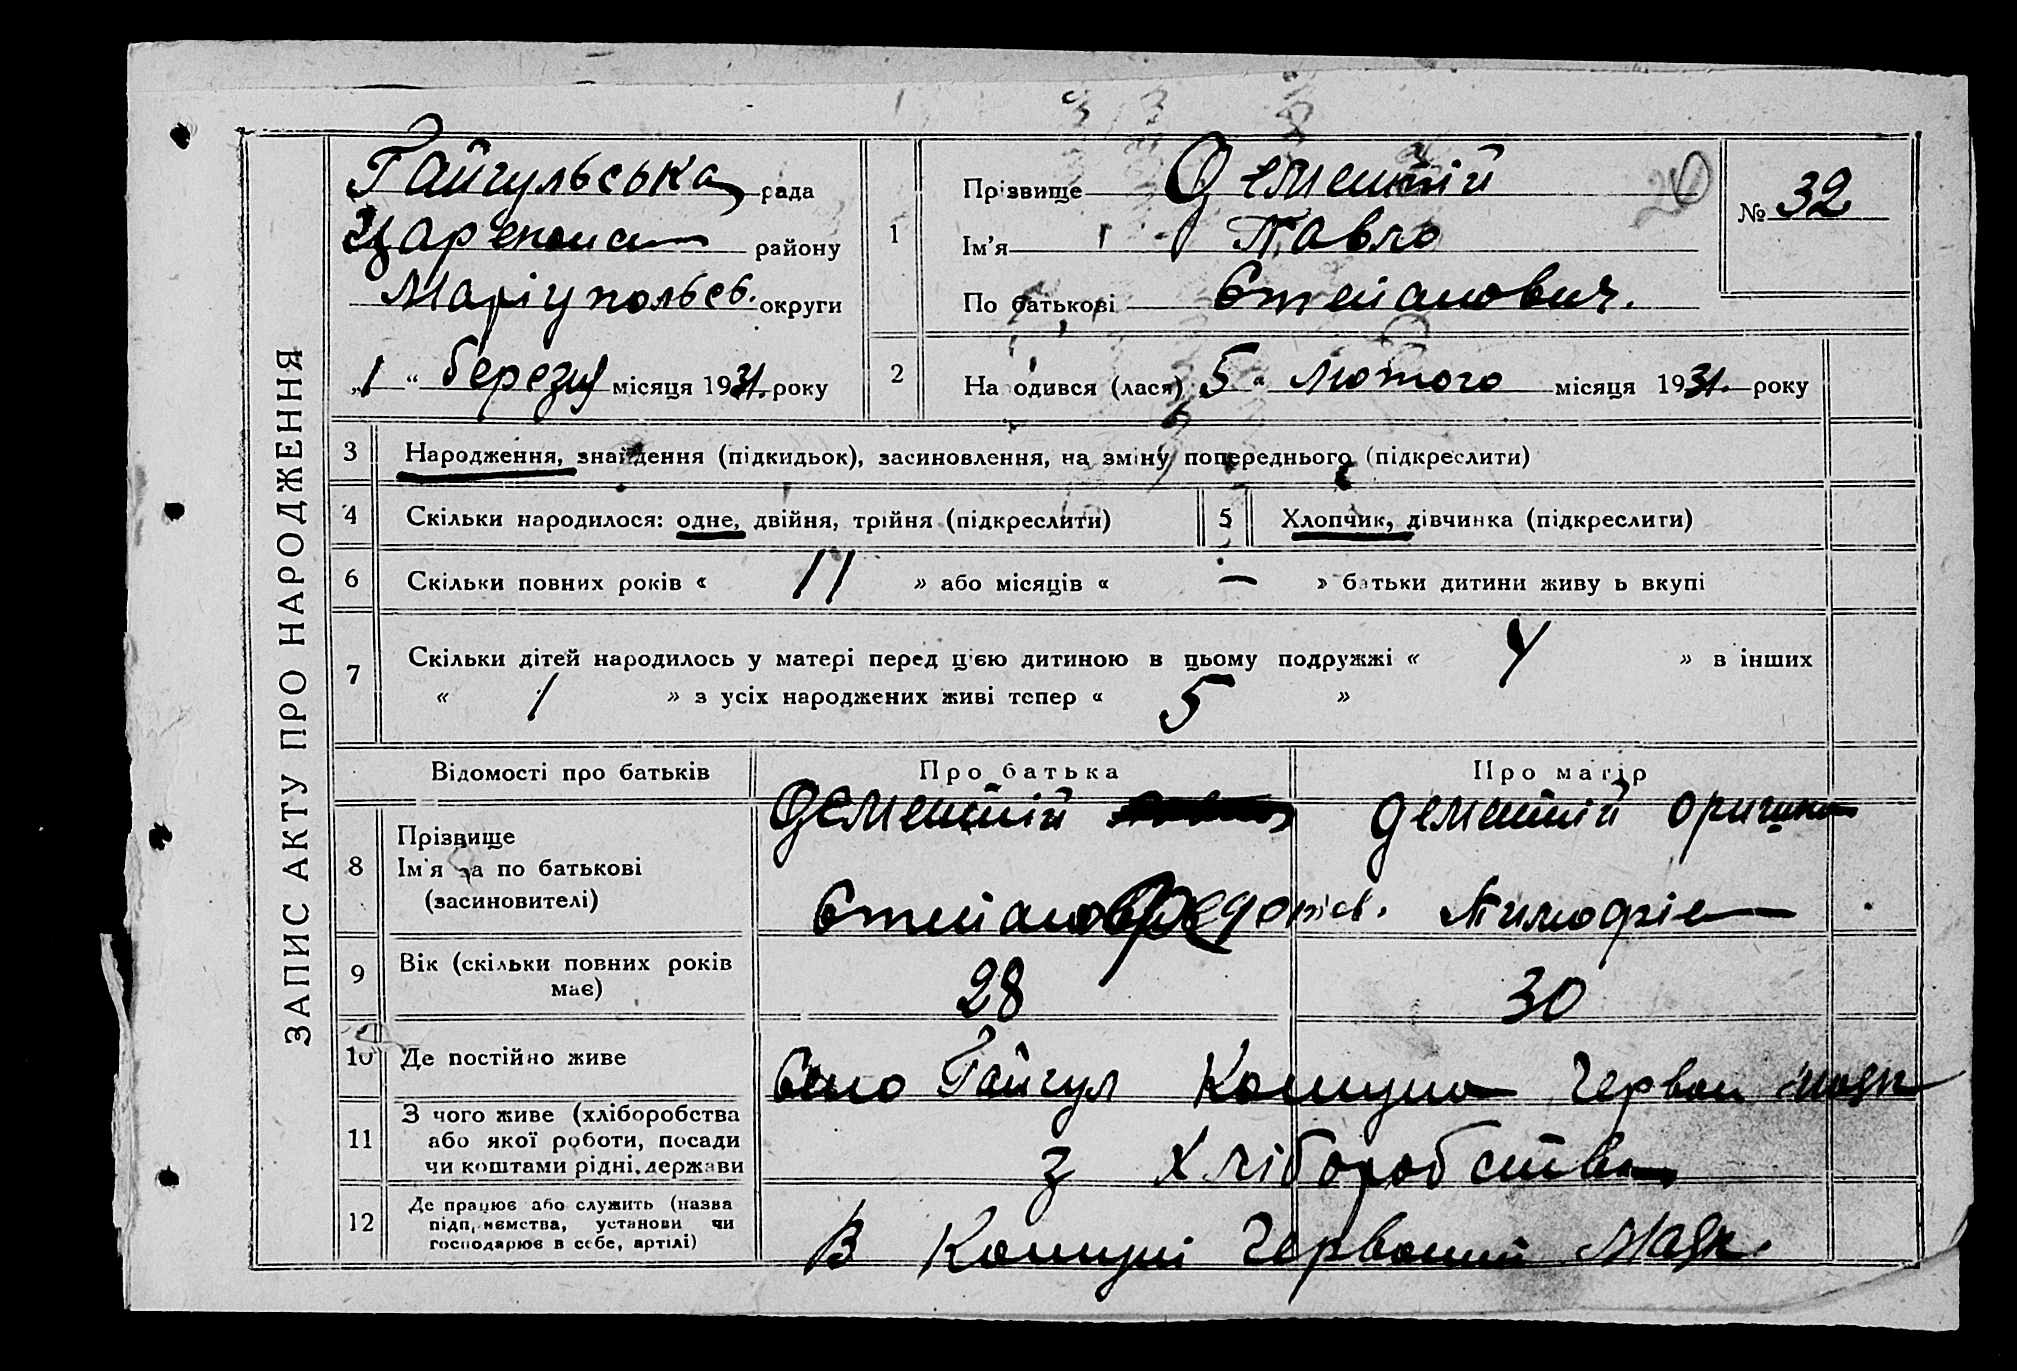 ЗАПИС АКТУ ПРО НАРОДЖЕННЯ
Гайчульська рада
району
Маріупольсь. округи
„1“ березня місяця 1931. року
1
Прізвище Дементій
Ім'я Павло
По батькові Степанович.
20
№ 32
2
На одився (лася) 5 “ лютого місяця 1931. року
3 Народження, знайдення (підкидьок), засиновлення, на зміну попереднього (підкреслити)
4 Скільки народилося: одне, двійня, трійня (підкреслити) 5 Хлопчик, дівчинка (підкреслити)
6 Скільки повних років « 11 » або місяців « — » батьки дитини живу ь вкупі
7 Скільки дітей народилось у матері перед ц'єю дитиною в цьому подружжі « 4 » в інших
« 1 » з усіх народжених живі тепер « 5 »
Відомості про батьків Про батька Про матір
8 Прізвище Ім'я та по батькові (засиновителі)
Дементій Дементій
Степан Федотів. Тимофіе
9 Вік (скільки повних років має) 28 30
10 Де постійно живе Село Гайчул Комуна Червон маяк
11 З чого живе (хліборобства або якої роботи, посади чи коштами рідні, держави з хліборобства
12 Де працює або служить (назва підприємства, установи чи господарює в себе, артілі) В Комуні Червоний Маяк.